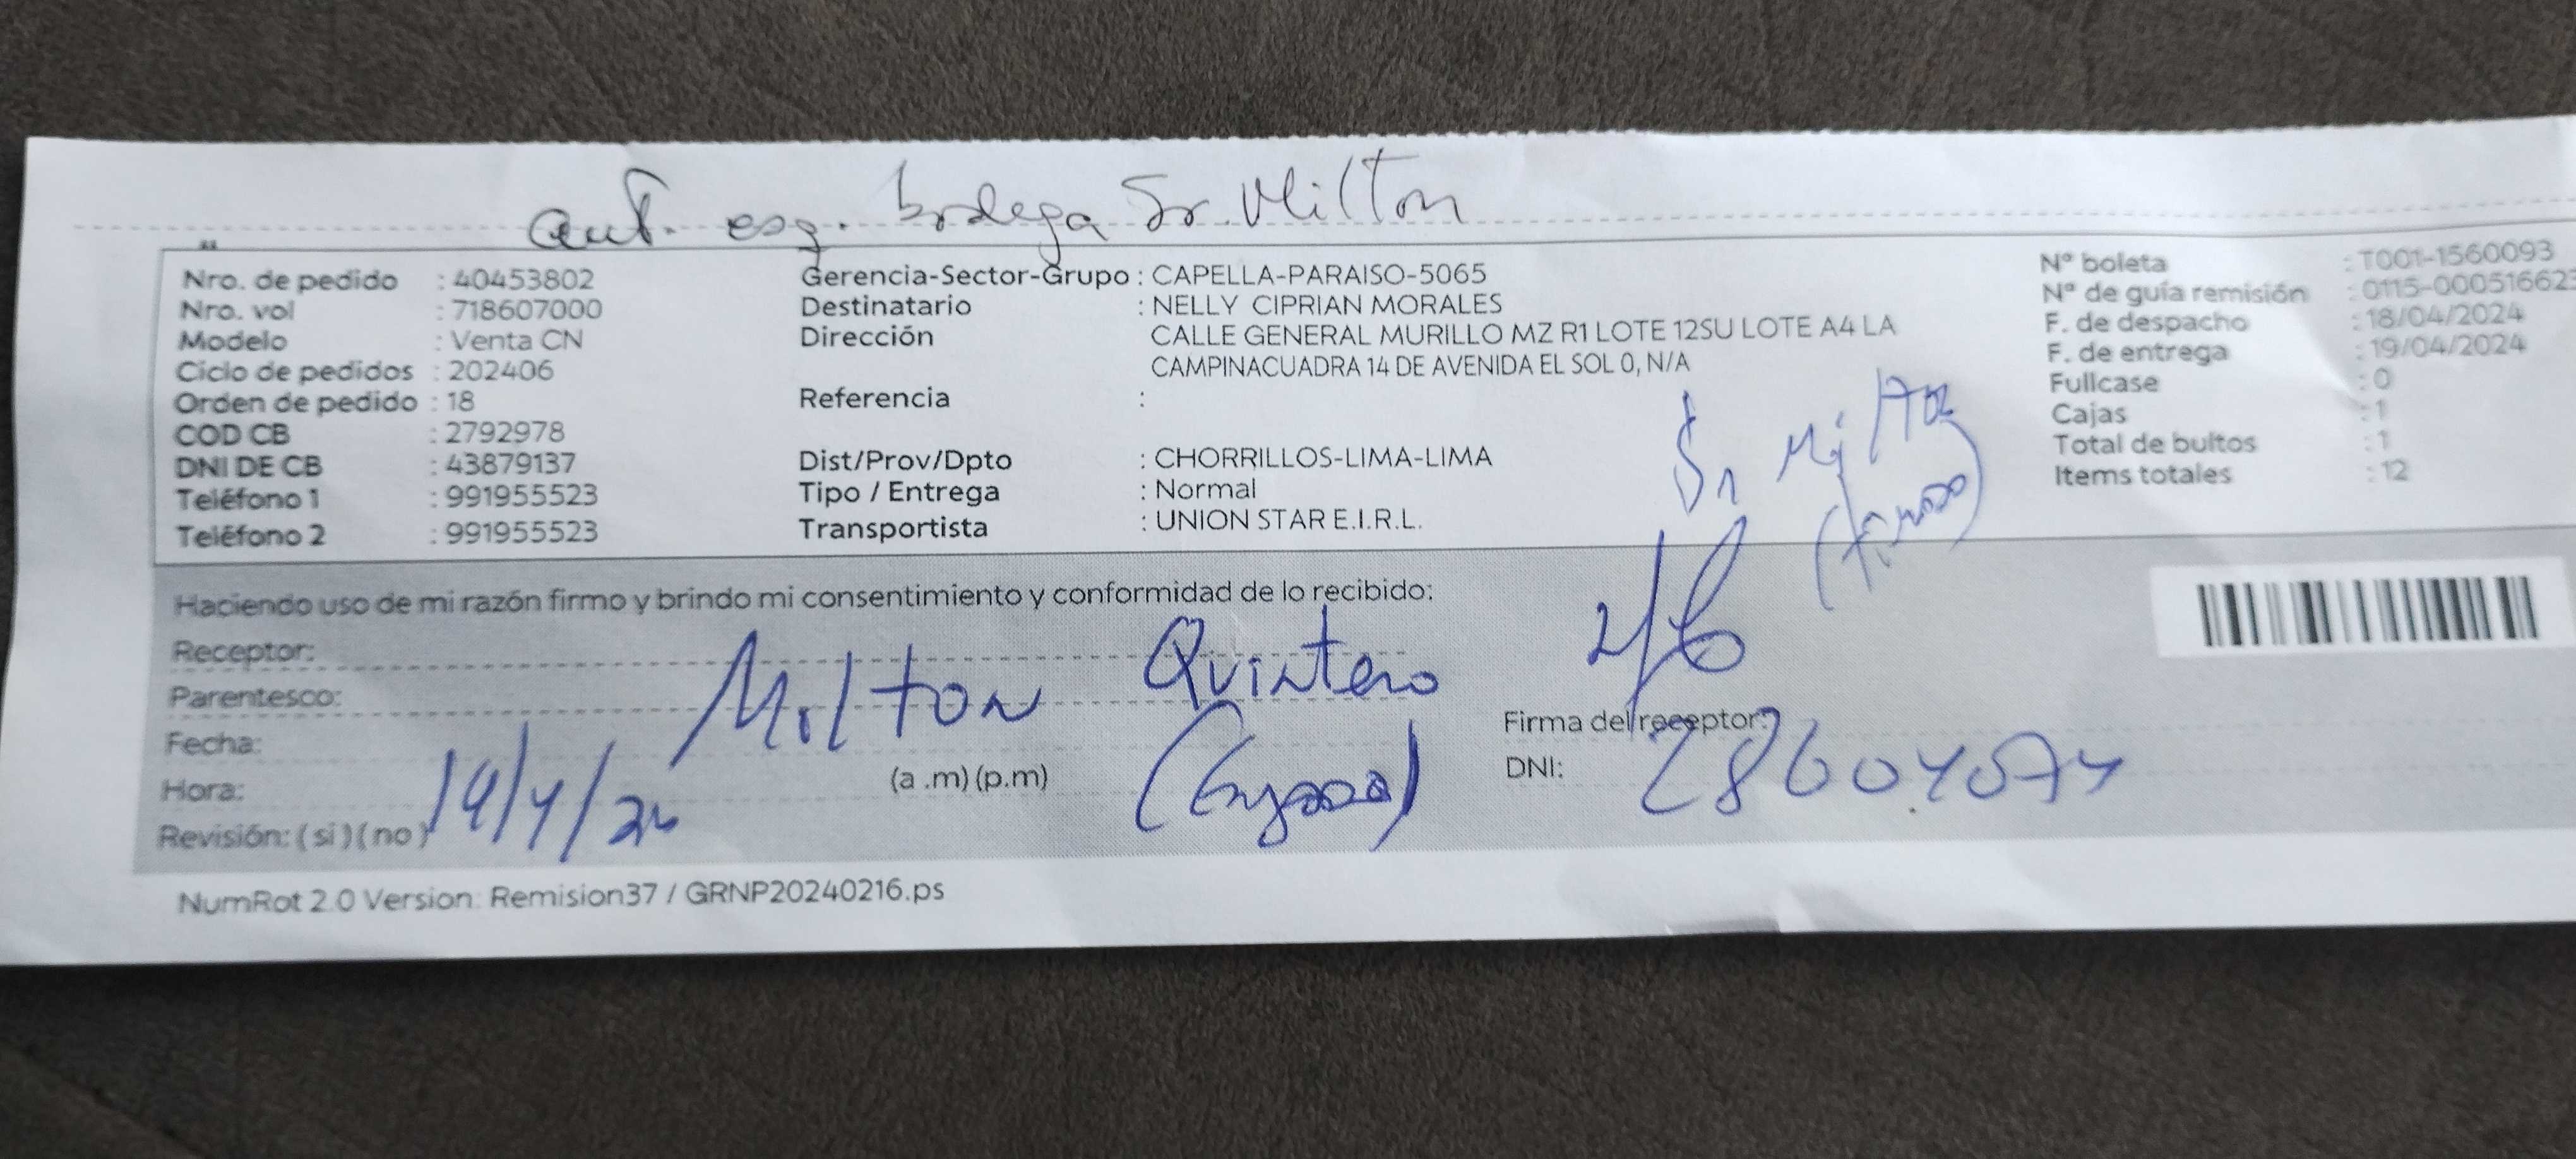 aut. esq. bodega Sr. Milton
Nro. de pedido : 40453802
Nro. vol : 718607000
Modelo : Venta CN
Ciclo de pedidos : 202406
Orden de pedido : 18
COD CB : 2792978
DNI DE CB : 43879137
Teléfono 1 : 991955523
Teléfono 2 : 991955523
Gerencia-Sector-Grupo : CAPELLA-PARAISO-5065
Destinatario : NELLY CIPRIAN MORALES
Dirección CALLE GENERAL MURILLO MZ R1 LOTE 12SU LOTE A4 LA
CAMPINACUADRA 14 DE AVENIDA EL SOL 0, N/A
Referencia :
Dist/Prov/Dpto : CHORRILLOS-LIMA-LIMA
Tipo / Entrega : Normal
Transportista : UNION STAR E.I.R.L.
Sr Milton
N° boleta : T001-1560093
N° de guía remisión : 0115-000516623
F. de despacho : 18/04/2024
F. de entrega : 19/04/2024
Fullcase : 0
Cajas : 1
Total de bultos : 1
Items totales : 12
Haciendo uso de mi razón firmo y brindo mi consentimiento y conformidad de lo recibido:
Receptor:
Parentesco: Milton Quintero
Fecha:
Hora: (a .m) (p.m)
Revisión: ( si ) ( no ) 19/4/24
Firma del receptor:
DNI:
NumRot 2.0 Version: Remision37 / GRNP20240216.ps